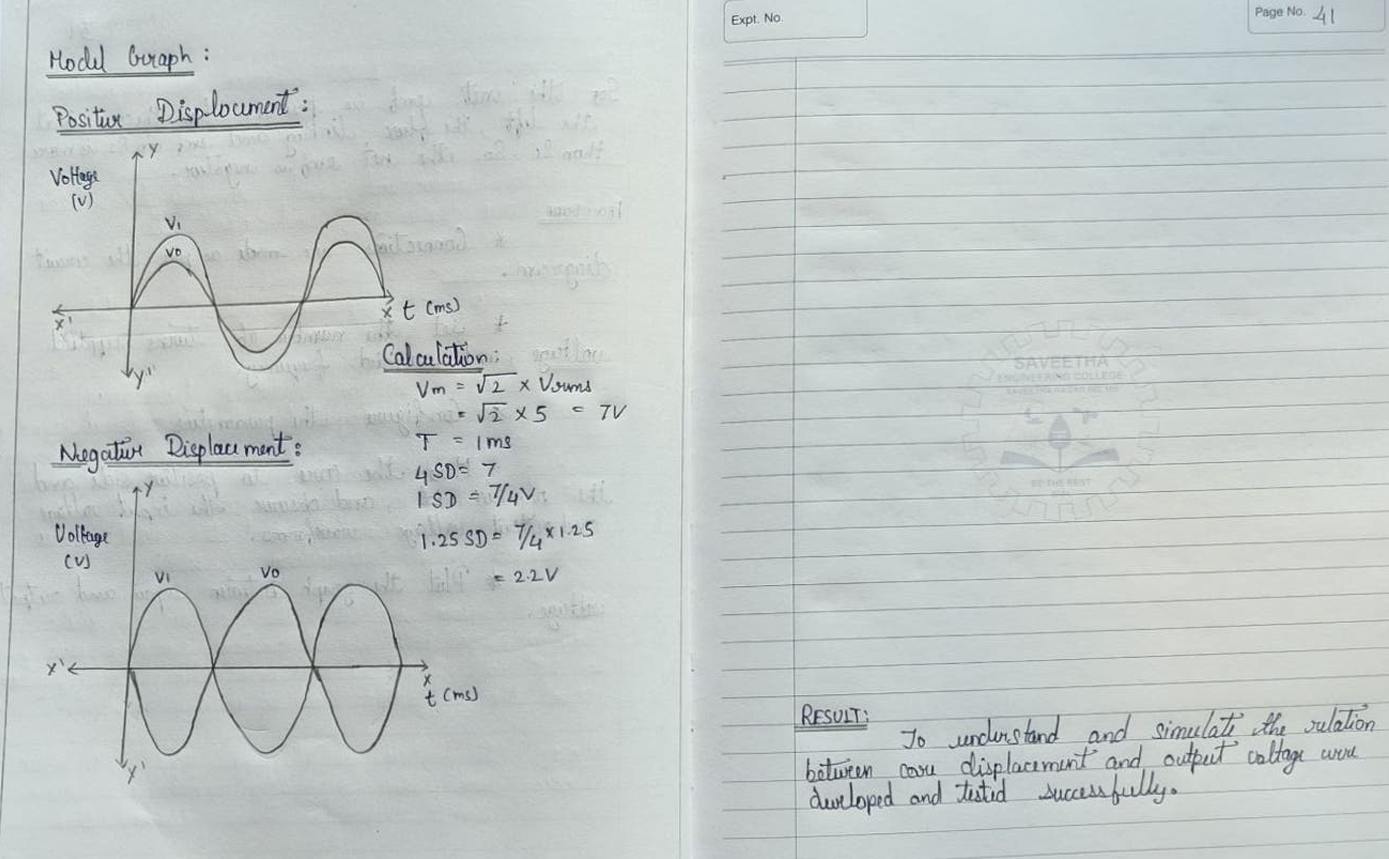 Model Graph :
Positive Displacement :
Y
Voltage
(V)
Vi
Vo
X'
X t (ms)
Y'
Calculation:
Vm = √2 × Vrms
= √2 × 5 = 7V
T = 1ms
4 SD = 7
1 SD = 7/4V
1.25 SD = 7/4 × 1.25
= 2.2V
Negative Displacement :
Y
Voltage
(V)
Vi
Vo
X'
X
t (ms)
Y'
Expt. No.
Page No. 41
SAVEETHA
ENGINEERING COLLEGE
BE THE BEST
RESULT:
To understand and simulate the relation
between core displacement and output voltage were
developed and tested successfully.